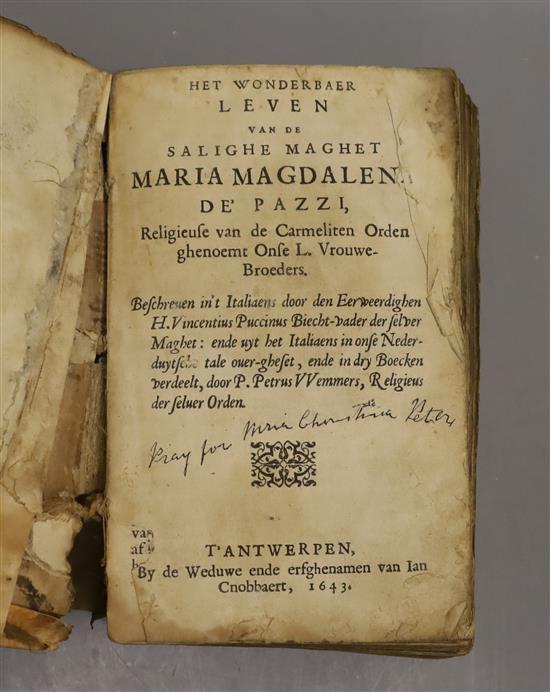 HET WONDERBAER
LEVEN
VAN DE
SALIGHE MAGHET
MARIA MAGDALEN.
DE' PAZZI,
Religieuſe van de Carmeliten Orden
ghenoemt Onſe L. Vrouwe-
Broeders.
Beſchreuen in't Italiaens door den Eerweerdighen
H. Vincentius Puccinus Biecht-vader der ſelver
Maghet: ende uyt het Italiaens in onſe Neder-
duytſche tale ouer-gheſet, ende in dry Boecken
verdeelt, door P. Petrus VVemmers, Religieus
der ſeluer Orden.
Pray for Maria Christina Peters
van
af
T'ANTWERPEN,
By de Weduwe ende erfghenamen van Ian
Cnobbaert, 1643.